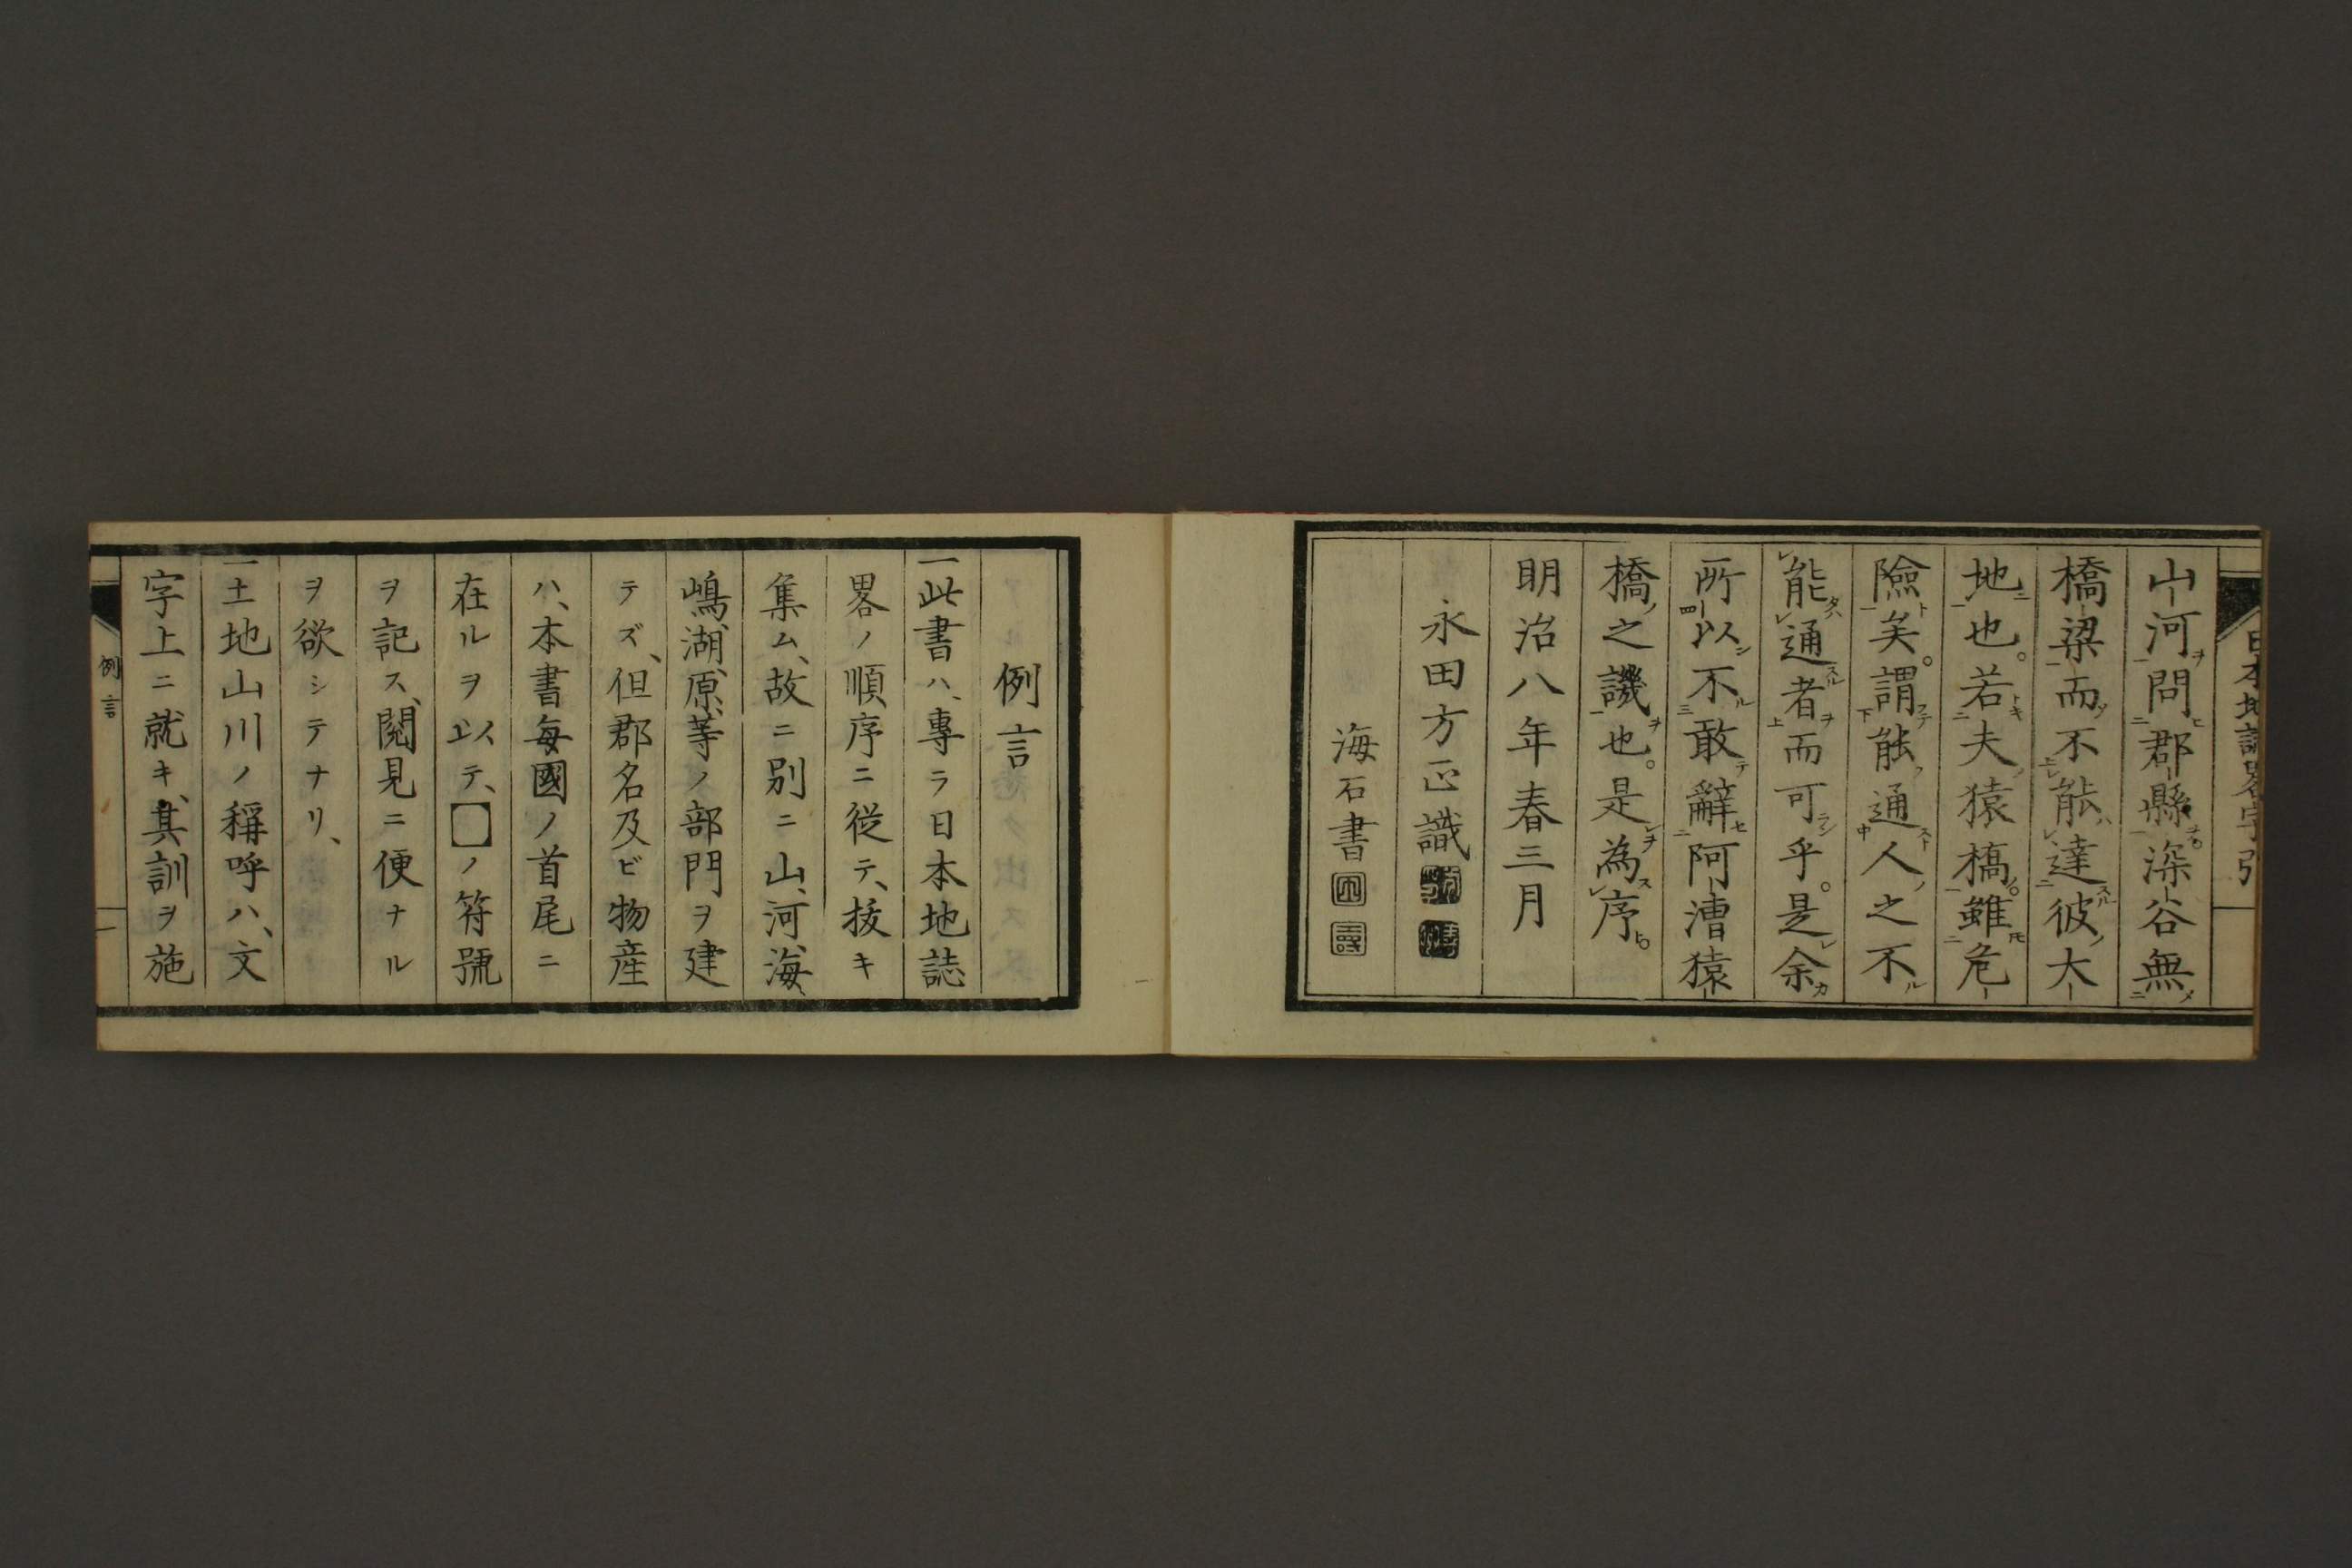 日本地誌畧字引
山河問郡縣深谷無
橋梁而不能達彼大
地也。若夫猿橋雖危
險矣。謂能通人之不
能通者而可乎。是余
所以不敢辭阿漕猿
橋之譏也。是為序
明治八年春三月
永田方正識
海石書
例言
一此書ハ、專ラ日本地誌
畧ノ順序ニ從テ、拔キ
集ム、故ニ別ニ山、河、海、
嶋、湖、原、等ノ部門ヲ建
テズ、但郡名及ビ物産
ハ、本書毎國ノ首尾ニ
在ルヲ以テ、□ノ符號
ヲ記ス、閱見ニ便ナル
ヲ欲シテナリ、
一土地山川ノ稱呼ハ、文
字上ニ就キ、其訓ヲ施
例言
一